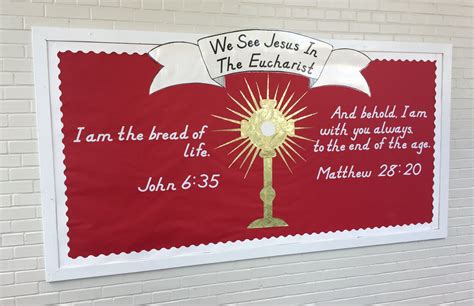 We See Jesus In
The Eucharist
I am the bread of
life.
John 6:35
And behold, I am
with you always,
to the end of the age.
Matthew 28:20